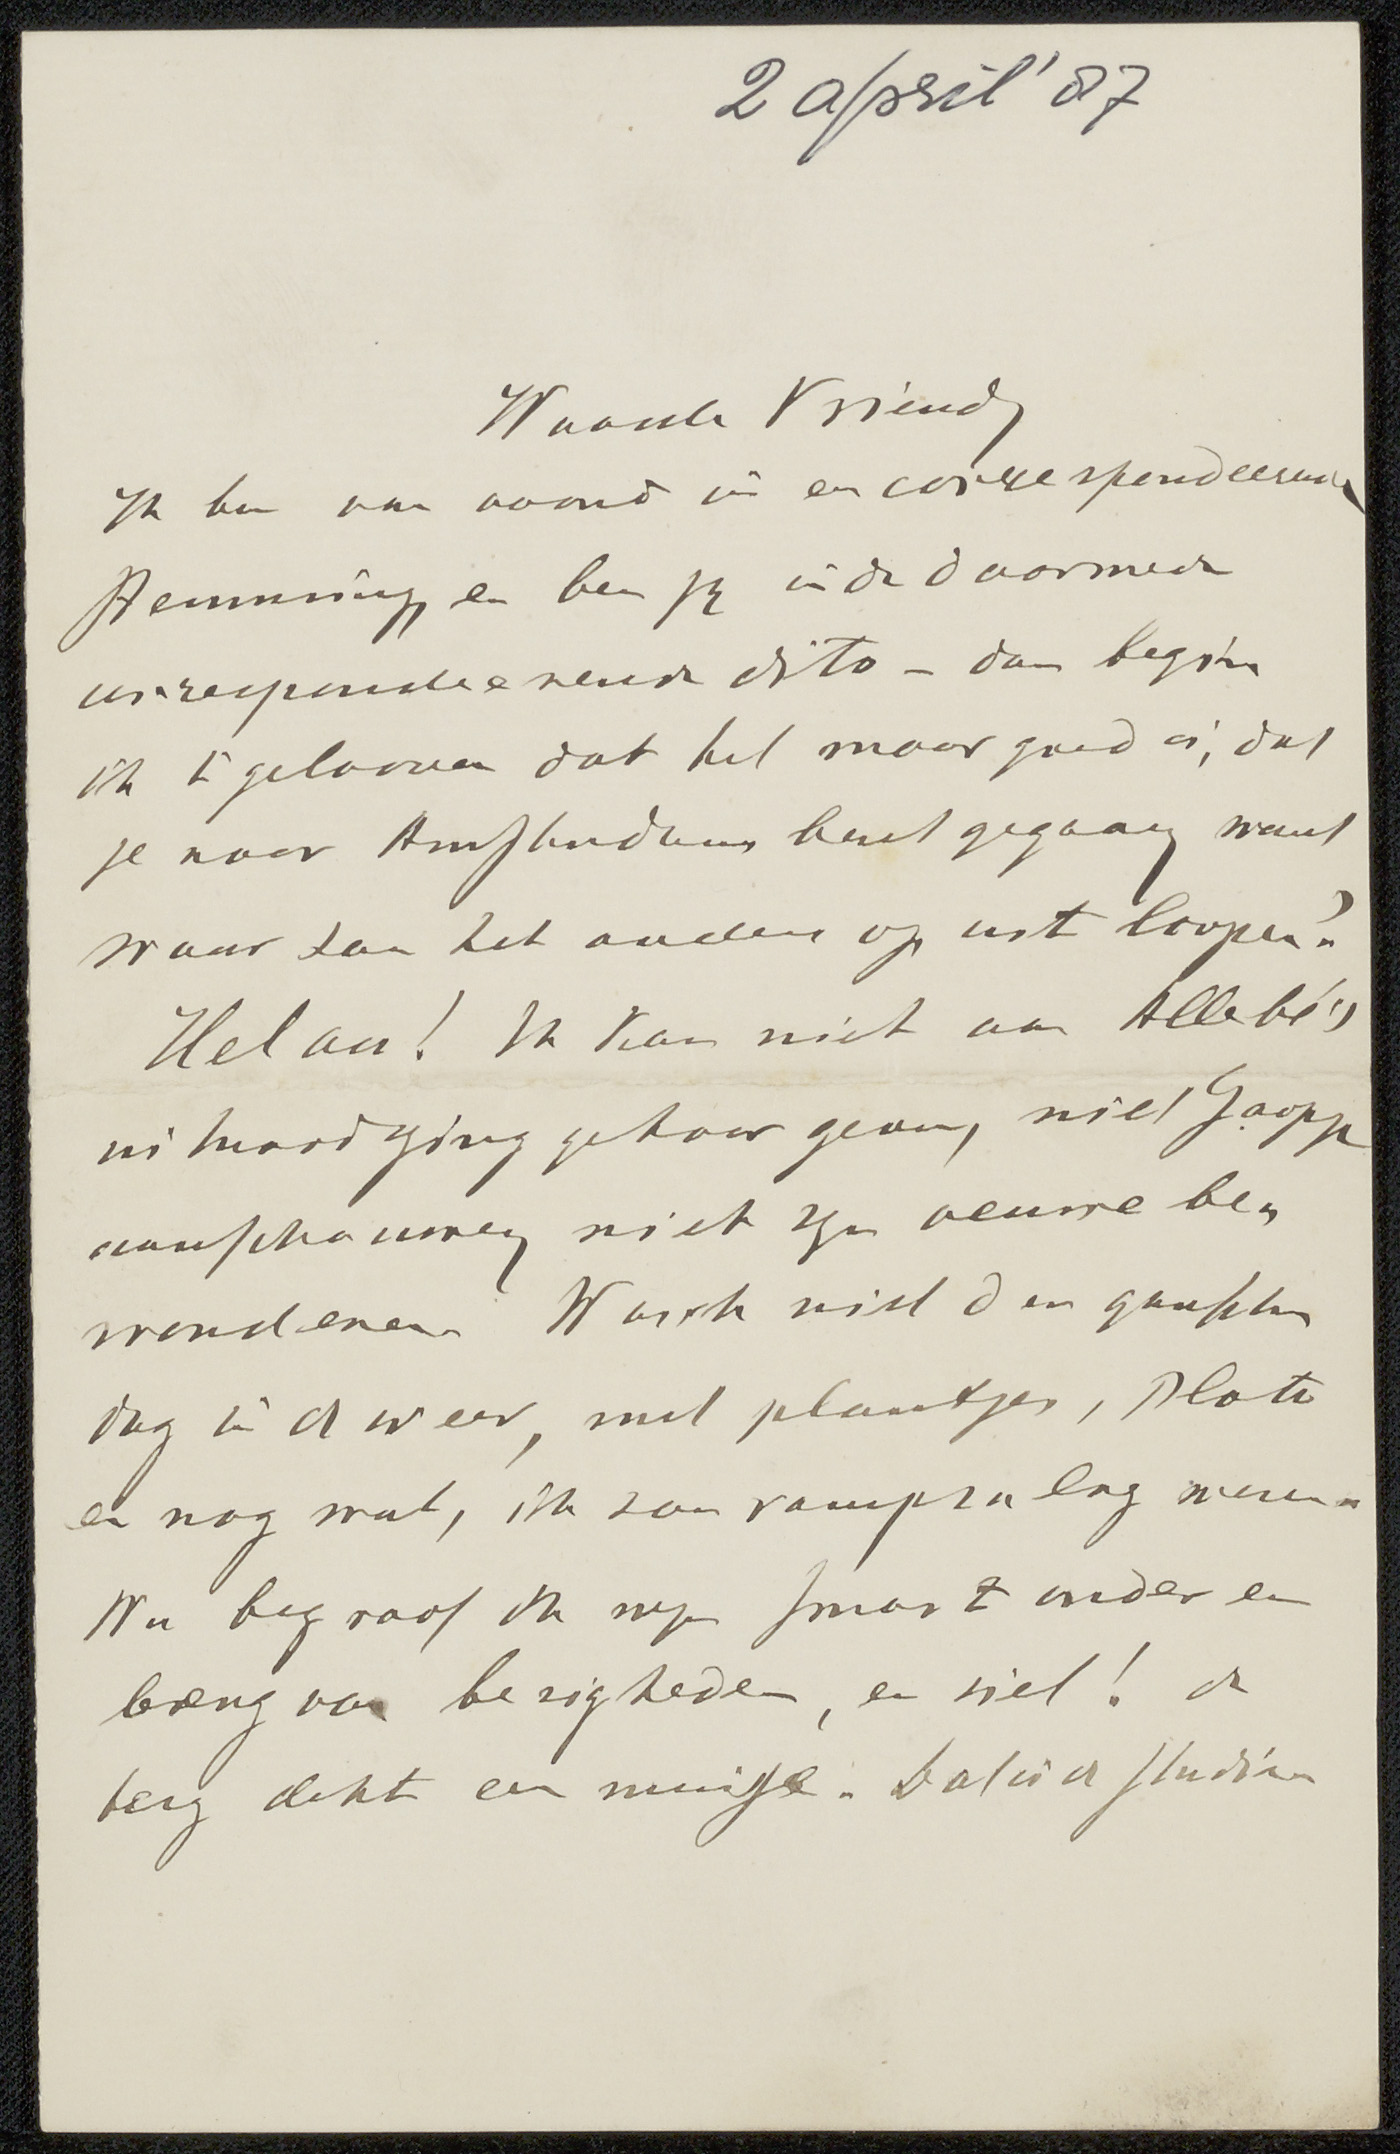 2 april '87
Waarde Vriend,
Ik ben van avond in en correspondeerende
stemming, en ben jij in de daarmede
correspondeerende dito – dan begin
ik te gelooven dat het maar goed is, dat
je naar Amsterdam bent gegaan, want
waar zou het anders op uit loopen?
Helaas! Ik kan niet aan Allebé's
uitnoodiging gehoor geven, niet
aanschouwen, niet zijn nieuwe be-
wonderen. Was ik niet den ganschen
dag in de weer, met plantjes, Plato
en nog wat, ik zou rampzalig wezen.
Nu begraaf ik mijn smart onder en
berg van bezigheden, en ziet! de
berg dekt een muisje. Dat is de studie